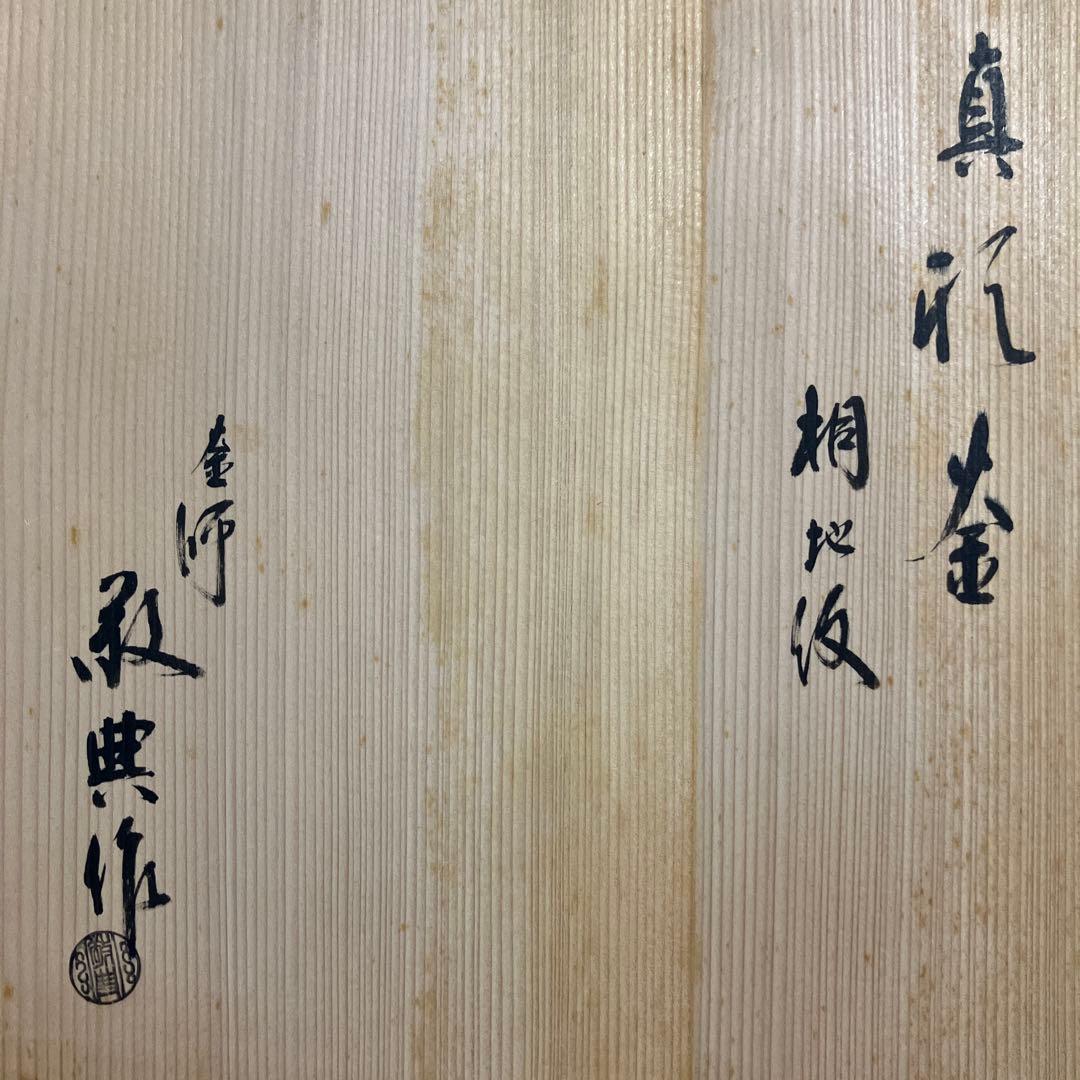 真形釜
桐地紋
釜師
敬典作
敬典